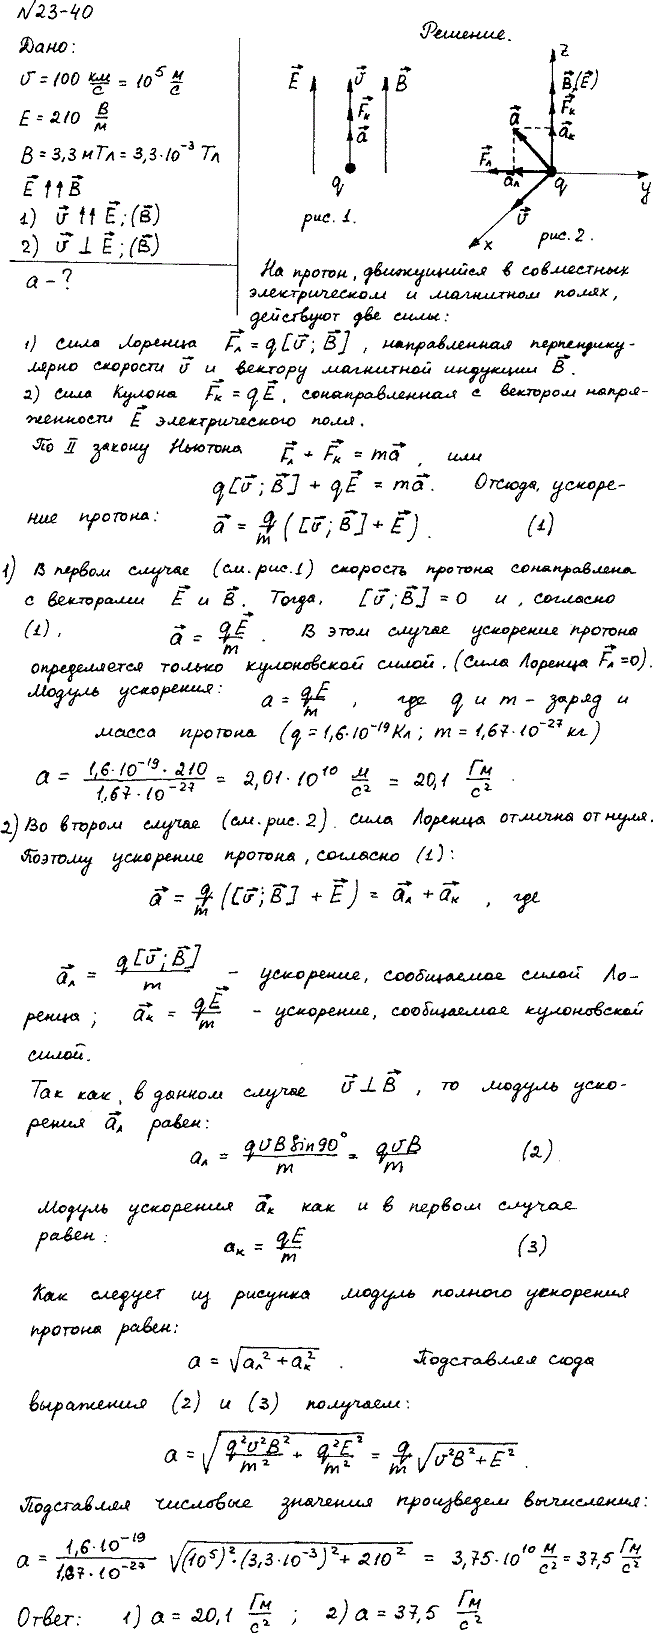 №23-40
Дано:
Решение.
υ = 100 км/с = 10⁵ м/с
E = 210 В/м
B = 3,3 мТл = 3,3·10⁻³ Тл
E⃗ ↑↑ B⃗
1) υ⃗ ↑↑ E⃗; (B⃗)
2) υ⃗ ⊥ E⃗; (B⃗)
a - ?
E⃗ υ⃗ B⃗
F⃗к
a⃗
q
рис. 1.
z
B⃗,(E⃗)
F⃗к
a⃗ a⃗к
F⃗л a⃗л q y
υ⃗
x рис. 2.
На протон, движущийся в совместных
электрическом и магнитном полях,
действуют две силы:
1) сила Лоренца F⃗л = q[υ⃗; B⃗], направленная перпендику-
лярно скорости υ⃗ и вектору магнитной индукции B⃗.
2) сила Кулона F⃗к = qE⃗, сонаправленная с вектором напря-
женности E⃗ электрического поля.
По II закону Ньютона F⃗л + F⃗к = ma⃗, или
q[υ⃗; B⃗] + qE⃗ = ma⃗. Отсюда, ускоре-
ние протона: a⃗ = q/m ([υ⃗; B⃗] + E⃗). (1)
1) В первом случае (см. рис. 1) скорость протона сонаправлена
с векторами E⃗ и B⃗. Тогда, [υ⃗; B⃗] = 0 и, согласно
(1), a⃗ = qE⃗/m. В этом случае ускорение протона
определяется только кулоновской силой. (Сила Лоренца F⃗л = 0).
Модуль ускорения: a = qE/m, где q и m - заряд и
масса протона (q = 1,6·10⁻¹⁹ Кл; m = 1,67·10⁻²⁷ кг)
a = 1,6·10⁻¹⁹·210/1,67·10⁻²⁷ = 2,01·10¹⁰ м/с² = 20,1 Гм/с².
2) Во втором случае (см. рис. 2) сила Лоренца отлична от нуля.
Поэтому ускорение протона, согласно (1):
a⃗ = q/m ([υ⃗; B⃗] + E⃗) = a⃗л + a⃗к, где
a⃗л = q[υ⃗; B⃗]/m - ускорение, сообщаемое силой Ло-
ренца; a⃗к = qE⃗/m - ускорение, сообщаемое кулоновской
силой.
Так как, в данном случае υ⃗ ⊥ B⃗, то модуль уско-
рения a⃗л равен:
aл = qυB sin90°/m = qυB/m (2)
Модуль ускорения a⃗к как и в первом случае
равен: aк = qE/m (3)
Как следует из рисунка модуль полного ускорения
протона равен:
a = √(aл² + aк²). Подставляя сюда
выражения (2) и (3) получаем:
a = √(q²υ²B²/m² + q²E²/m²) = q/m √(υ²B² + E²).
Подставляя числовые значения произведем вычисления:
a = 1,6·10⁻¹⁹/1,67·10⁻²⁷ √((10⁵)²·(3,3·10⁻³)² + 210²) = 3,75·10¹⁰ м/с² = 37,5 Гм/с²
Ответ: 1) a = 20,1 Гм/с²; 2) a = 37,5 Гм/с²